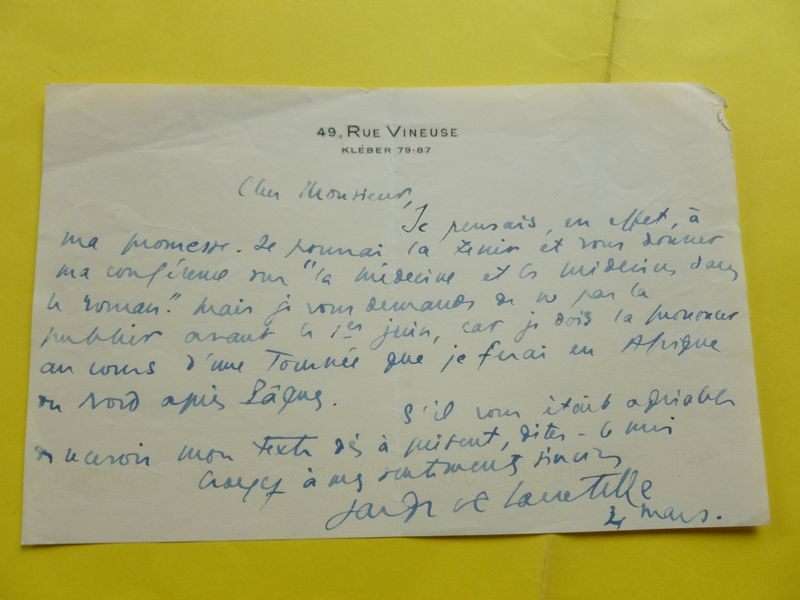 49, RUE VINEUSE
KLÉBER 79-87
Cher Monsieur,
Je pensais, en effet, à
ma promesse. Je pourrai la tenir et vous donner
ma conférence sur "la médecine et les médecins dans
le roman". Mais je vous demande de ne pas la
publier avant le 1er juin, car je dois la prononcer
au cours d'une Tournée que je ferai en Afrique
du Nord après Pâques.
S'il vous était agréable
de recevoir mon texte dès à présent, dites-le moi
Croyez à mes sentiments sincères
de Lacretelle
4 mars.